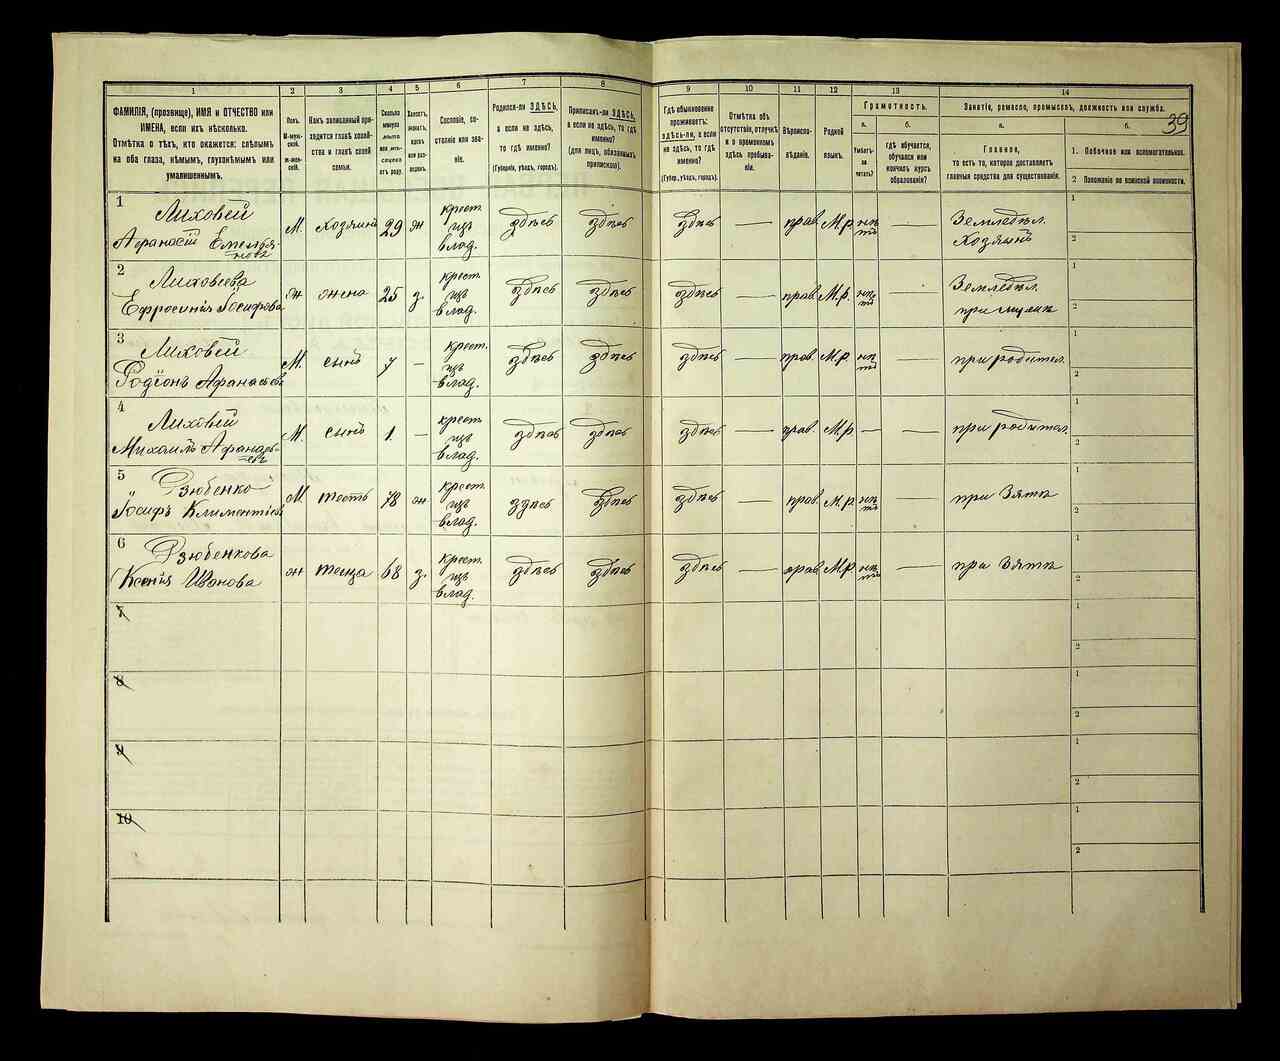 39
1 2 3 4 5 6 7 8 9 10 11 12 13 14
ФАМИЛІЯ, (прозвище), ИМЯ и ОТЧЕСТВО или
ИМЕНА, если ихъ нѣсколько.
Отмѣтка о тѣхъ, кто окажется: слѣпымъ
на оба глаза, нѣмымъ, глухонѣмымъ или
умалишеннымъ.
Полъ.
М-муж-
ской.
ж-жен-
скій.
Какъ записанный при-
ходится главѣ хозяй-
ства и главѣ своей
семьи.
Сколько
минуло
лѣтъ
или мѣ-
сяцевъ
отъ роду.
Холостъ,
женатъ,
вдовъ
или раз-
веденъ.
Сословіе, со-
стояніе или зва-
ніе.
Родился-ли ЗДѢСЬ,
а если не здѣсь,
то гдѣ именно?
(Губернія, уѣздъ, городъ).
Приписанъ-ли ЗДѢСЬ,
а если не здѣсь, то гдѣ
именно?
(для лицъ, обязанныхъ
припиской).
Гдѣ обыкновенно
проживаетъ:
здѣсь-ли, а если
не здѣсь, то гдѣ
именно?
(Губер., уѣздъ, городъ).
Отмѣтка объ
отсутствіи, отлучкѣ
и о временномъ
здѣсь пребыва-
ніи.
Вѣроиспо-
вѣданіе.
Родной
языкъ.
Грамотность.
а.
Умѣетъ-
ли
читать?
б.
гдѣ обучается,
обучался или
кончилъ курсъ
образованія?
Занятіе, ремесло, промыселъ, должность или служба.
а.
Главное,
то есть то, которое доставляетъ
главныя средства для существованія.
б.
1. Побочное или вспомогательное.
2 Положеніе по воинской повинности.
1 Лиховей
Афанасій Емелья-
новъ
М. хозяинъ 29 ж крест. изъ влад. здѣсь здѣсь здѣсь — прав. М.р. нѣтъ — Земледѣл. Хозяинъ 1 2
2 Лиховеева
Ефросинія Іосифова ж жена 25 з. крест. изъ влад. здѣсь здѣсь здѣсь — прав. М.р. нѣтъ — Земледѣл. при мужѣ 1 2
3 Лиховей
Родіонъ Афанасьевъ М. сынъ 7 — крест. изъ влад. здѣсь здѣсь здѣсь — прав. М.р. нѣтъ — при родител. 1 2
4 Лиховей
Михаилъ Афанасье-
въ М. сынъ 1. — крест. изъ влад. здѣсь здѣсь здѣсь — прав. М.р. — — при родител. 1 2
5 Дзюбенко
Іосифъ Климентіевъ М тесть 78 ж крест. изъ влад. здѣсь здѣсь здѣсь — прав. М.р. нѣтъ — при Зятѣ 1 2
6 Дзюбенкова
Ксенія Иванова ж теща 68 з. крест. изъ влад. здѣсь здѣсь здѣсь — прав. М.р. нѣтъ — при Зятѣ 1 2
7 1 2
8 1 2
9 1 2
10 1 2